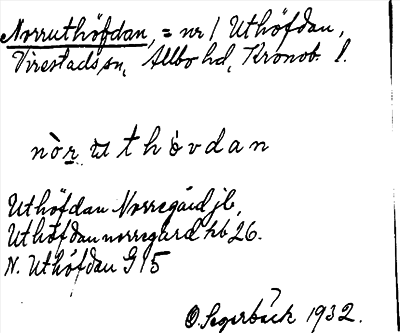 Norruthöfdan, = nr 1 Uthöfdan,
Virestads sn, Allbo hd, Kronob. l.
nòr uthòvdan
Uthöfdan Norregård jb,
Uthöfdan norregård kb 26.
N. Uthöfdan G 15
O. Segerbäck 1932.